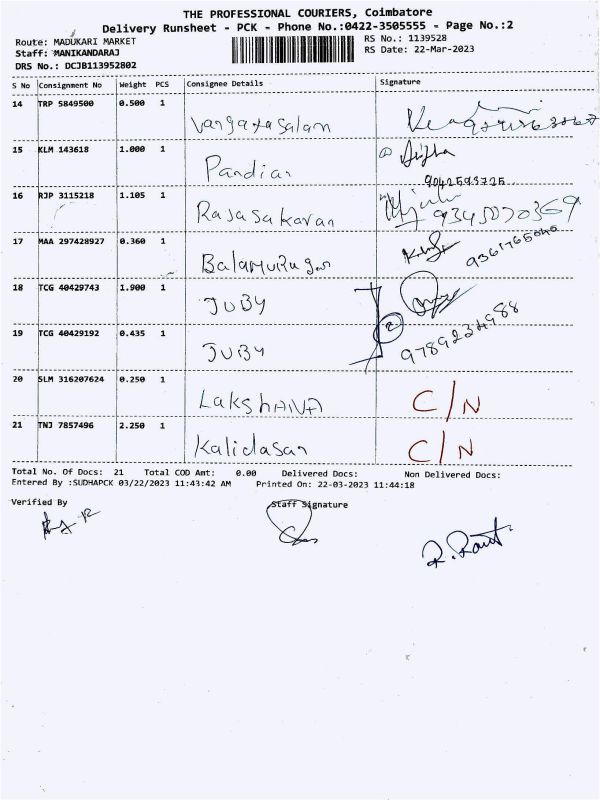 THE PROFESSIONAL COURIERS, Coimbatore
Delivery Runsheet - PCK - Phone No.:0422-3505555 - Page No.:2
Route: MADUKARI MARKET
RS No.: 1139528
Staff: MANIKANDARAJ
RS Date: 22-Mar-2023
DRS No.: DCJB113952802
S No Consignment No Weight PCS Consignee Details Signature
14 TRP 5849500 0.500 1
15 KLM 143618 1.000 1 Pandian
9042593725
16 RJP 3115218 1.105 1 Rajasakaran 9345070369
17 MAA 297428927 0.360 1 Balamurugan
18 TCG 40429743 1.900 1 JUBY
2
19 TCG 40429192 0.435 1 JUBY 9789234988
20 SLM 316207624 0.250 1 LakshANA C/N
21 TNJ 7857496 2.250 1 Kalidasan C/N
Total No. Of Docs: 21 Total COD Amt: 0.00 Delivered Docs: Non Delivered Docs:
Entered By :SUDHAPCK 03/22/2023 11:43:42 AM Printed On: 22-03-2023 11:44:18
Verified By Staff Signature